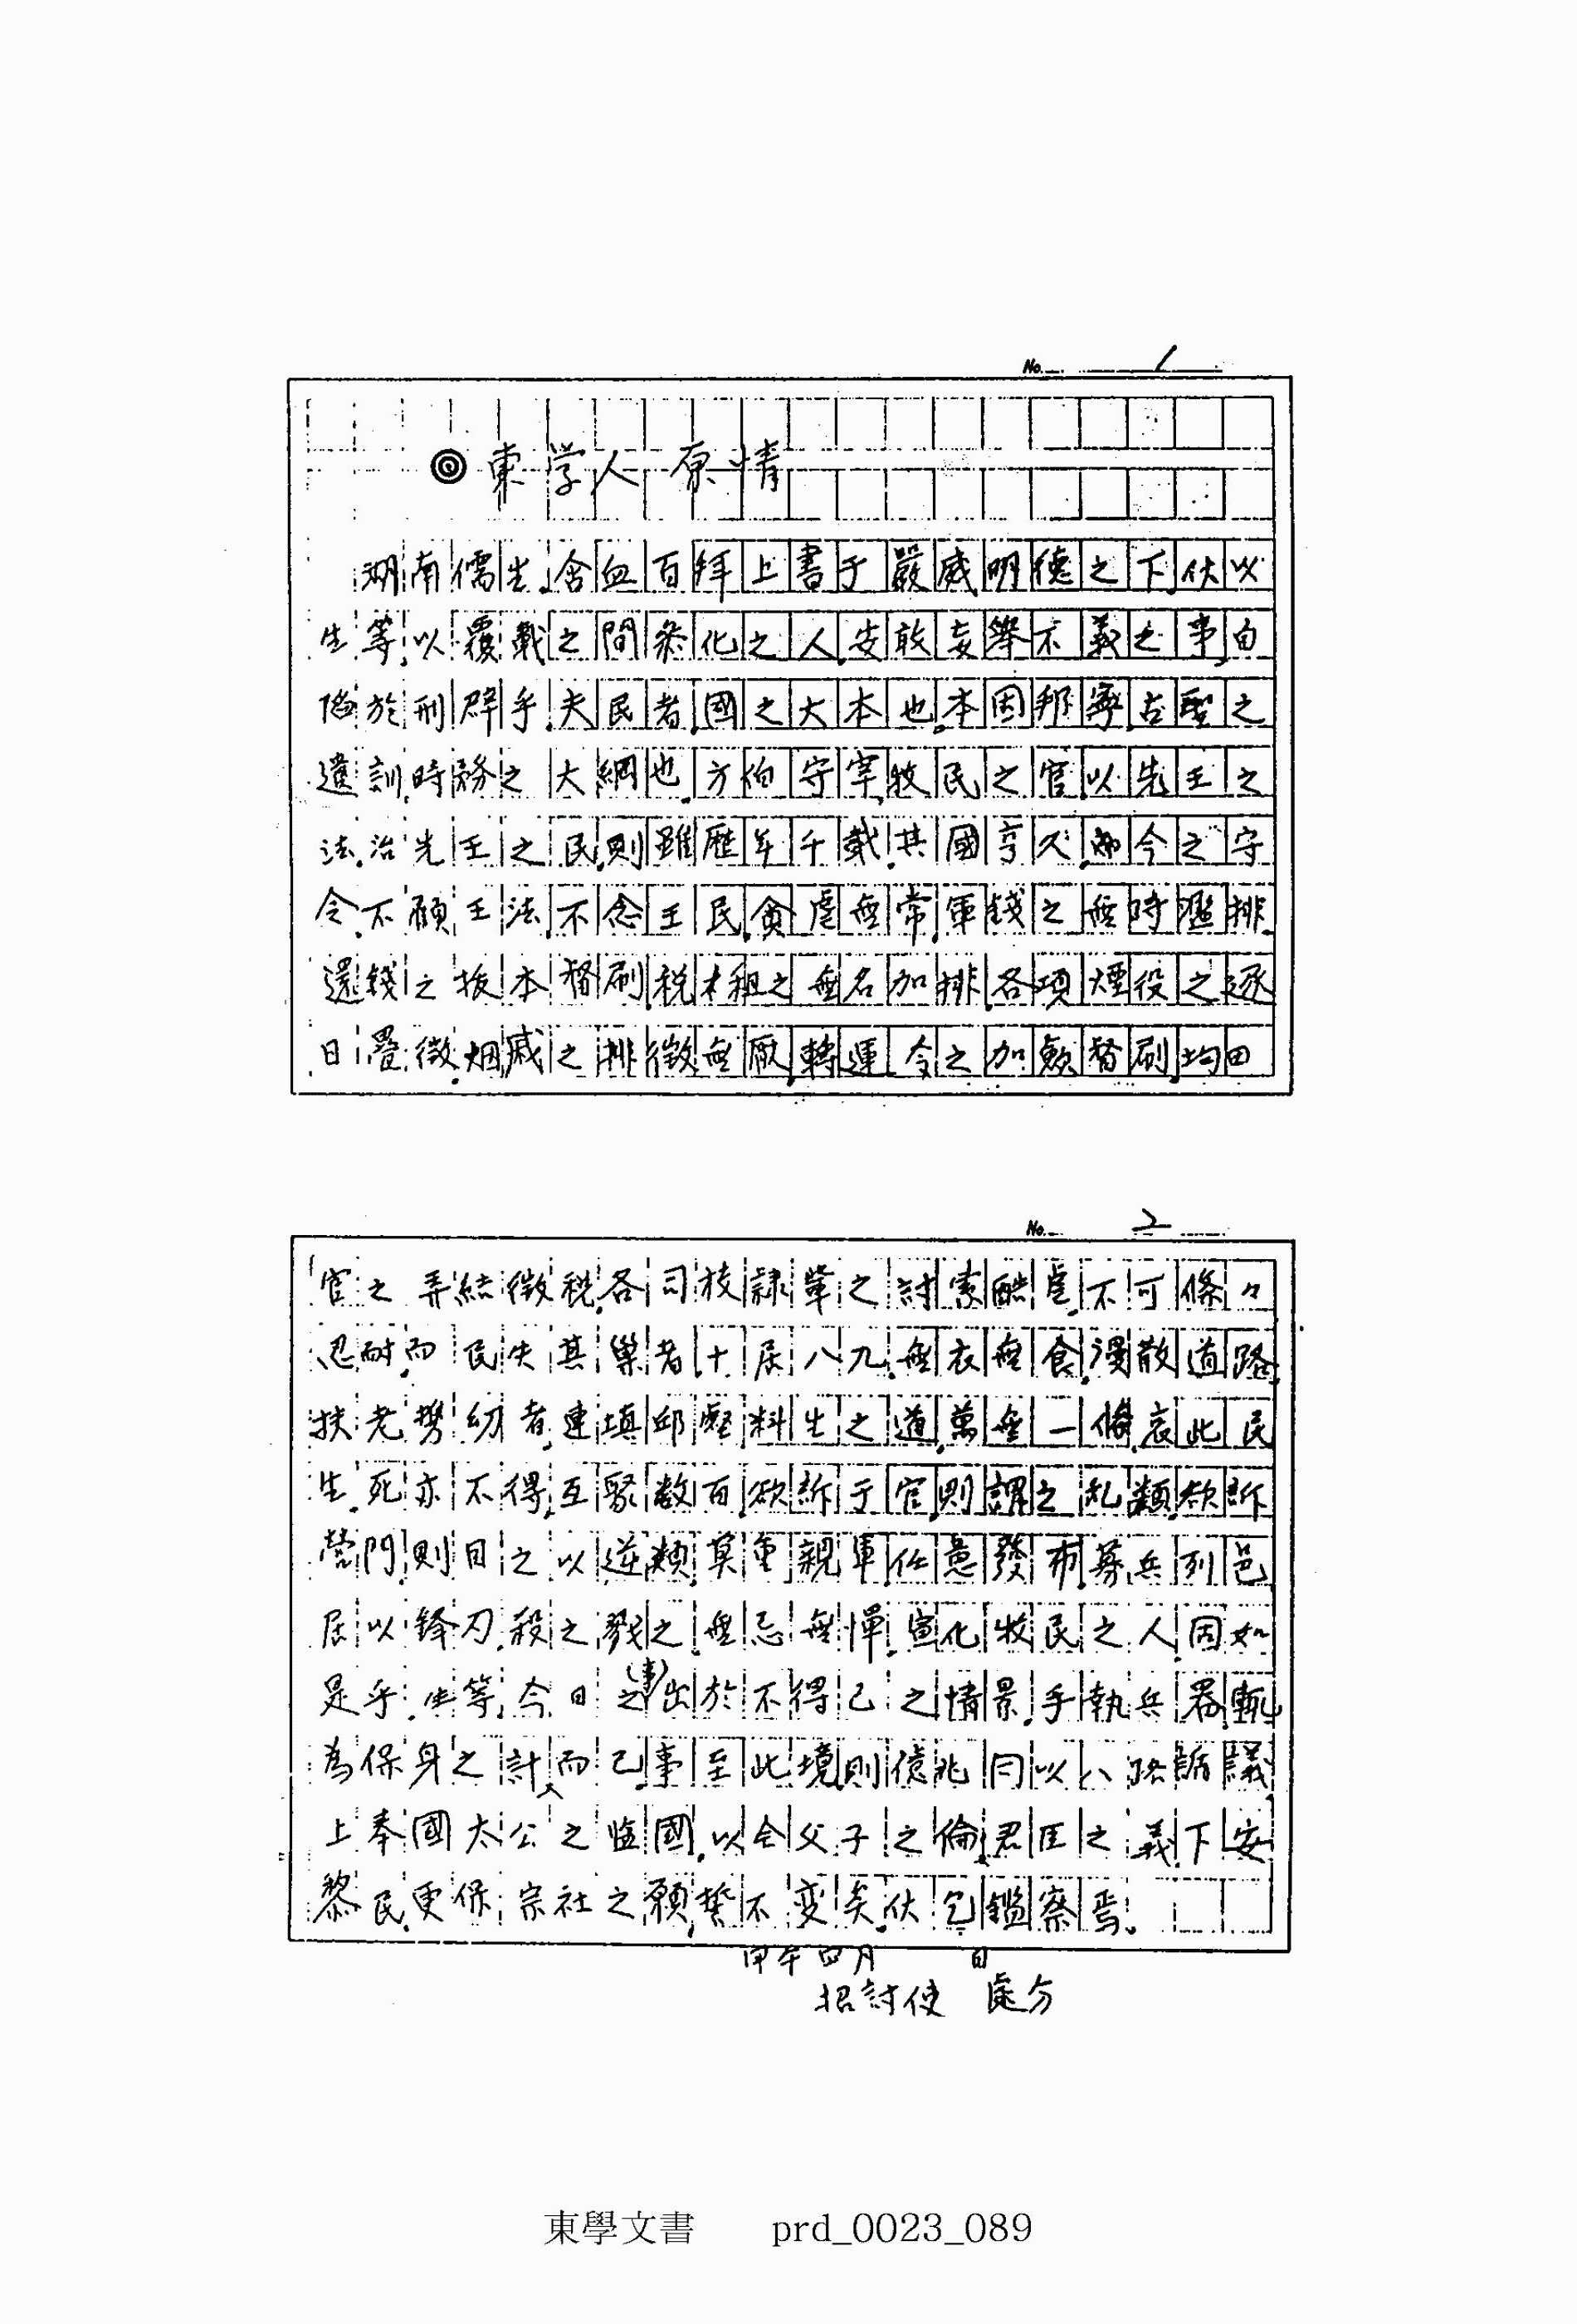 No. 1
◎ 東学人 原情
湖南儒生, 含血百拜上書于嚴威明德之下, 伏以
生等, 以覆載之間, 叅化之人, 安敢妄擧不義之事, 自
陷於刑辟乎, 夫民者, 國之大本也, 本固邦寧, 古聖之
遺訓, 時務之大綱也, 方伯守宰, 牧民之官, 以先王之
法, 治先王之民, 則雖歷年千載, 其國亨久, 而今之守
令, 不顧王法, 不念王民, 貪虐無常, 軍錢之無時濫排,
還錢之拔本督刷, 税租之無名加排, 各項煙役之逐
日疊徵, 烟戚之排徵無厭, 轉運令之加斂督刷, 均田
No. 2
官之弄結徵税, 各司校隷軰之討索酷虐, 不可條々
忍耐, 而民失其巢者, 十居八九, 無衣無食, 漫散道路,
扶老携幼者, 連填邱壑, 料生之道, 萬無一條, 哀此民
生, 死亦不得, 互聚数百, 欲訴于官, 則謂之乱類, 欲訴
營門, 則目之以逆類, 莫重親軍, 任意發布, 募兵列邑,
居以鋒刀, 殺之戮之, 無忌無憚, 宣化牧民之人, 因如
是乎, 生等, 今日之(事)出於不得已之情景, 手執兵器, 輒
為保身之計而已, 事至此境, 則億兆同以, 八路詢議,
上奉國太公之監國, 以全父子之倫, 君臣之義, 下安
黎民, 更保宗社之願, 誓不変矣, 伏乞鑑察焉,
甲午四月 日
招討使 處分
東學文書 prd_0023_089